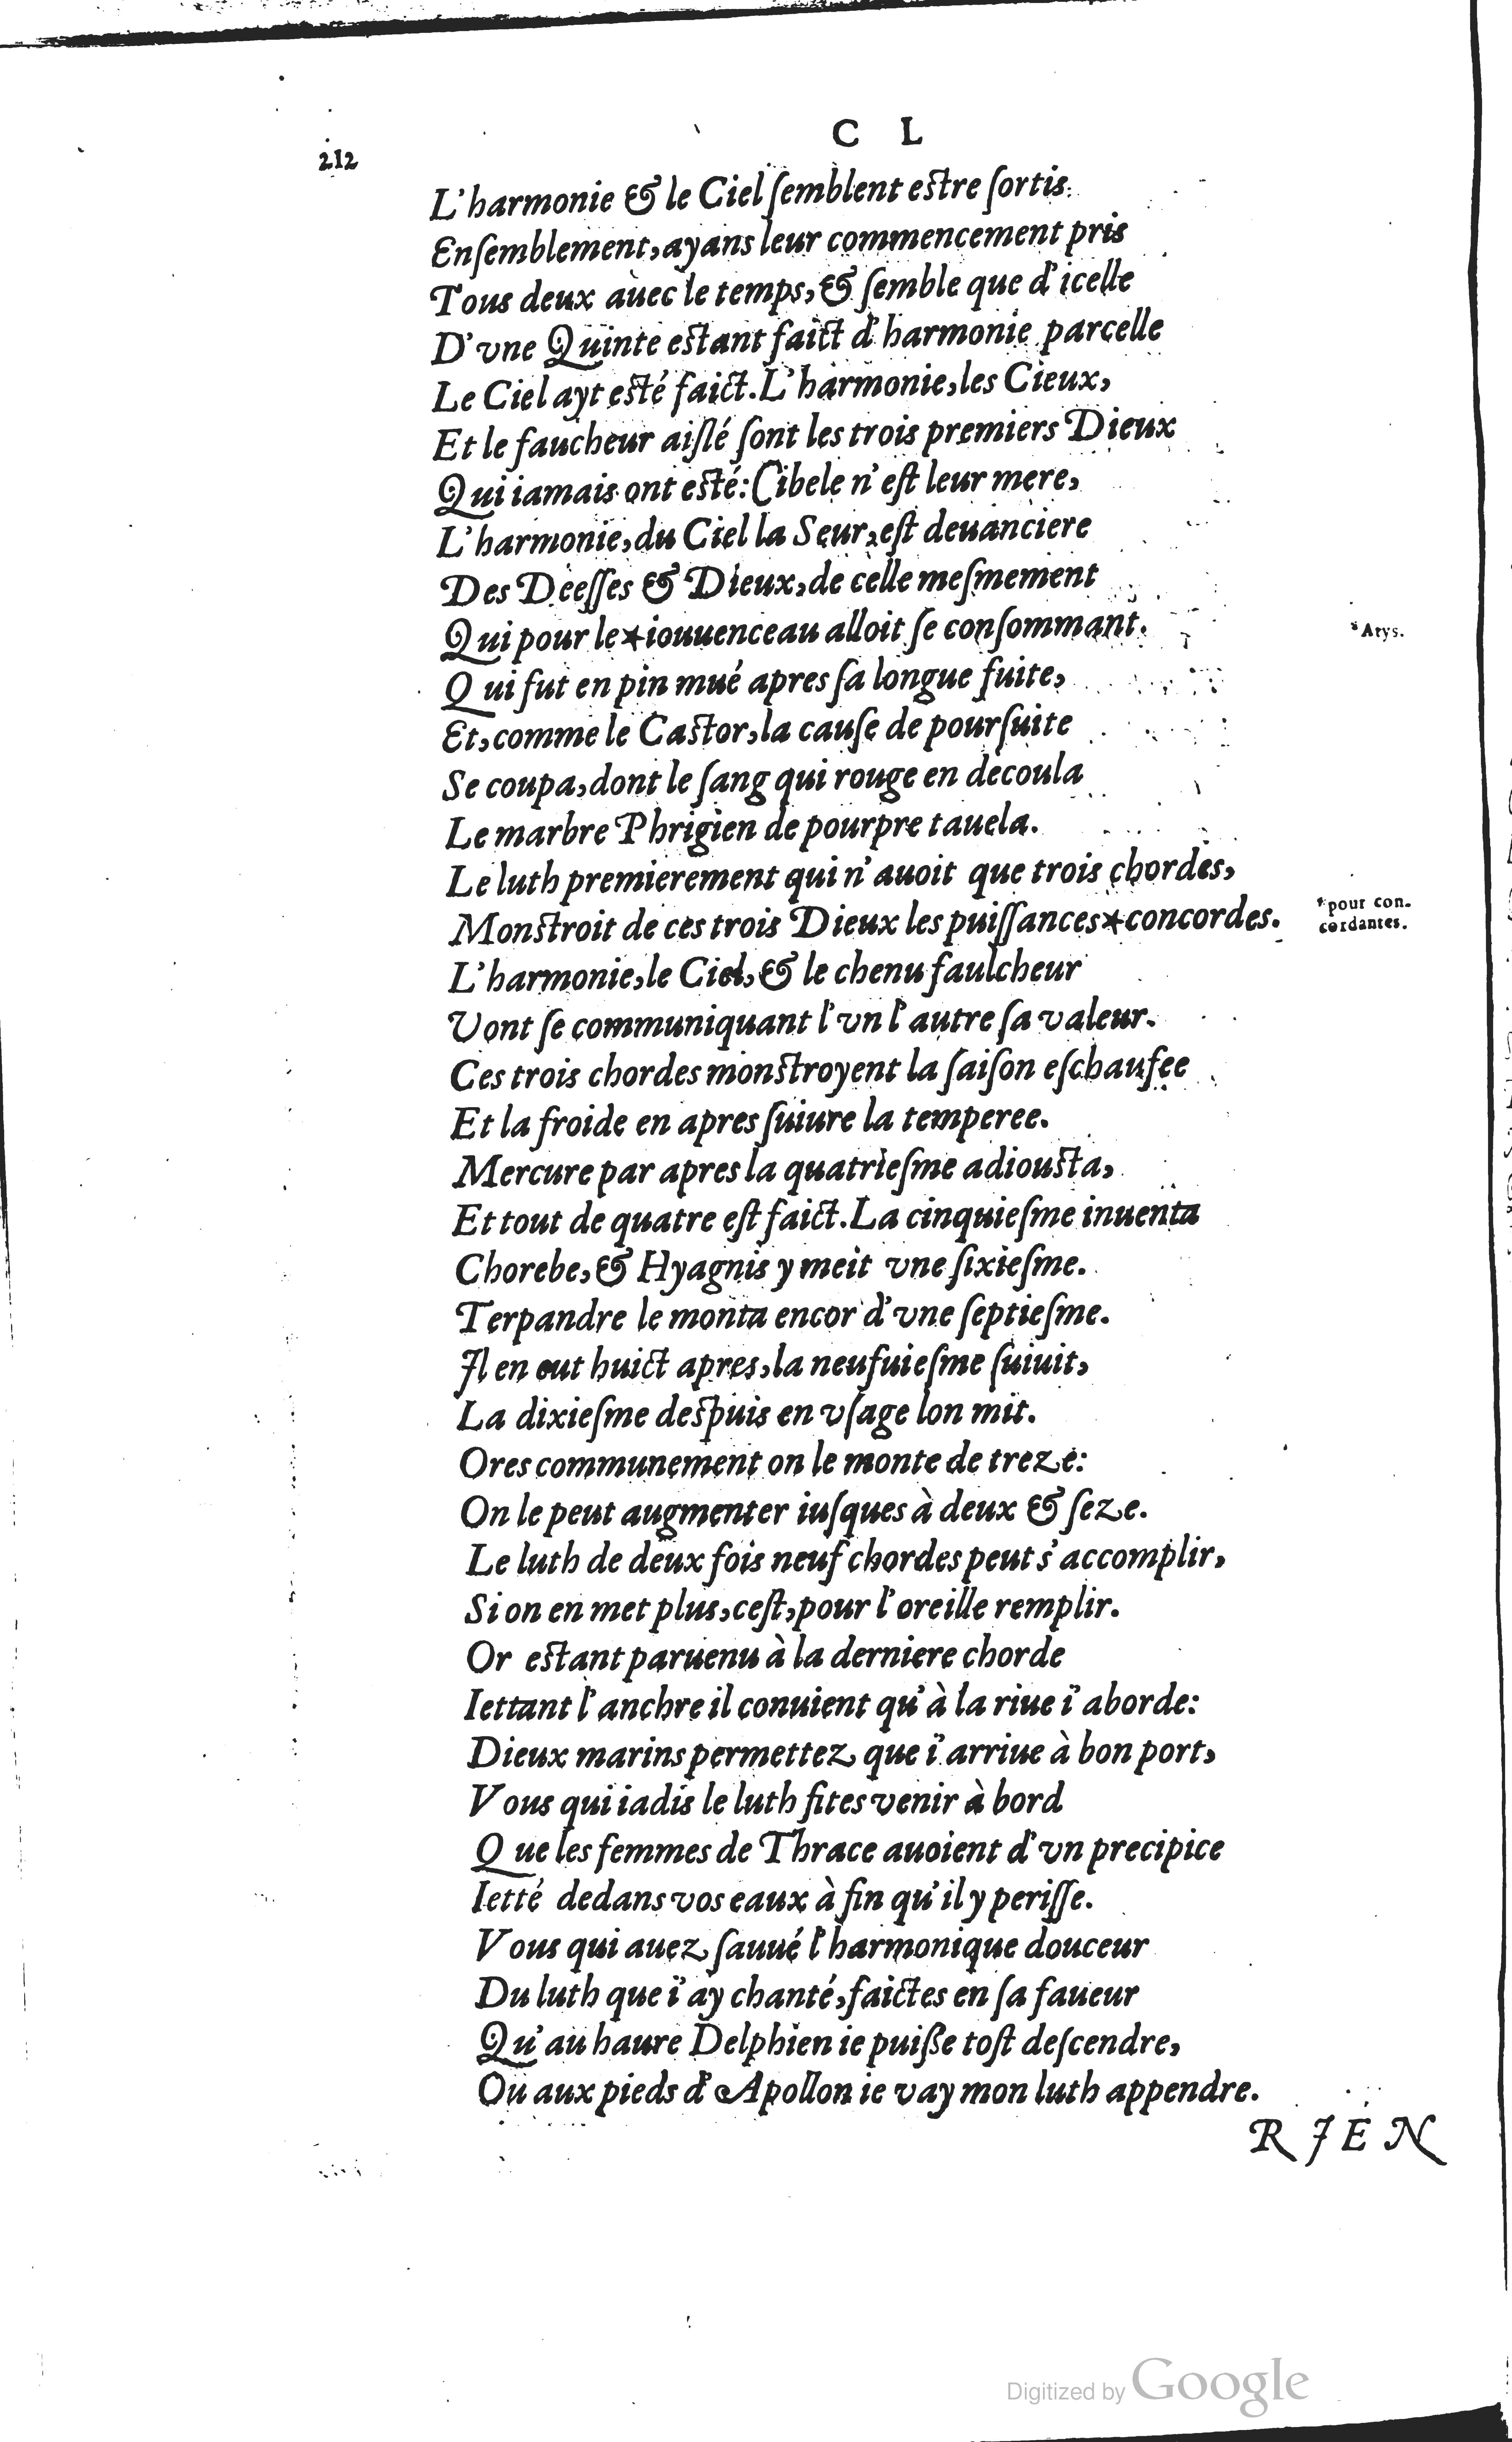 C L
212
L'harmonie & le Ciel ſemblent eſtre ſortis.
Enſemblement, ayans leur commencement pris
Tous deux auec le temps, & ſemble que d'icelle
D'vne Quinte eſtant faict d'harmonie parcelle
Le Ciel ayt eſté faict. L'harmonie, les Cieux,
Et le faucheur aiſlé ſont les trois premiers Dieux
Qui iamais ont eſté: Cibele n'eſt leur mere,
L'harmonie, du Ciel la Seur, eſt deuanciere
Des Deeſſes & Dieux, de celle meſmement
Qui pour le *iouuenceau alloit ſe conſommant.
*Atys.
Qui fut en pin mué apres ſa longue fuite,
Et, comme le Caſtor, la cauſe de pourſuite
Se coupa, dont le ſang qui rouge en decoula
Le marbre Phrigien de pourpre tauela.
Le luth premierement qui n'auoit que trois chordes,
Monſtroit de ces trois Dieux les puiſſances *concordes.
*pour con-
cordantes.
L'harmonie, le Ciel, & le chenu faulcheur
Vont ſe communiquant l'vn l'autre ſa valeur.
Ces trois chordes monſtroyent la ſaiſon eſchaufee
Et la froide en apres ſuiure la temperee.
Mercure par apres la quatrieſme adiouſta,
Et tout de quatre eſt faict. La cinquieſme inuenta
Chorebe, & Hyagnis y meit vne ſixieſme.
Terpandre le monta encor d'vne ſeptieſme.
Il en eut huict apres, la neufuieſme ſuiuit,
La dixieſme deſpuis en vſage lon mit.
Ores communement on le monte de treze:
On le peut augmenter iuſques à deux & ſeze.
Le luth de deux fois neuf chordes peut s'accomplir,
Si on en met plus, ceſt, pour l'oreille remplir.
Or eſtant paruenu à la derniere chorde
Iettant l'anchre il conuient qu'à la riue i'aborde:
Dieux marins permettez que i'arriue à bon port,
Vous qui iadis le luth fites venir à bord
Que les femmes de Thrace auoient d'vn precipice
Ietté dedans vos eaux à fin qu'il y periſſe.
Vous qui auez ſauué l'harmonique douceur
Du luth que i'ay chanté, faictes en ſa faueur
Qu'au haure Delphien ie puiße toſt deſcendre,
Ou aux pieds d'Apollon ie vay mon luth appendre.
RIEN
Digitized by Google